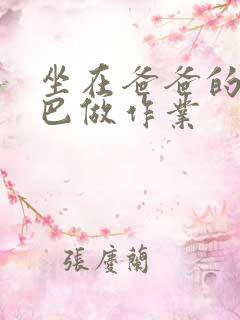 坐在爸爸的
巴做作业
張慶蘭